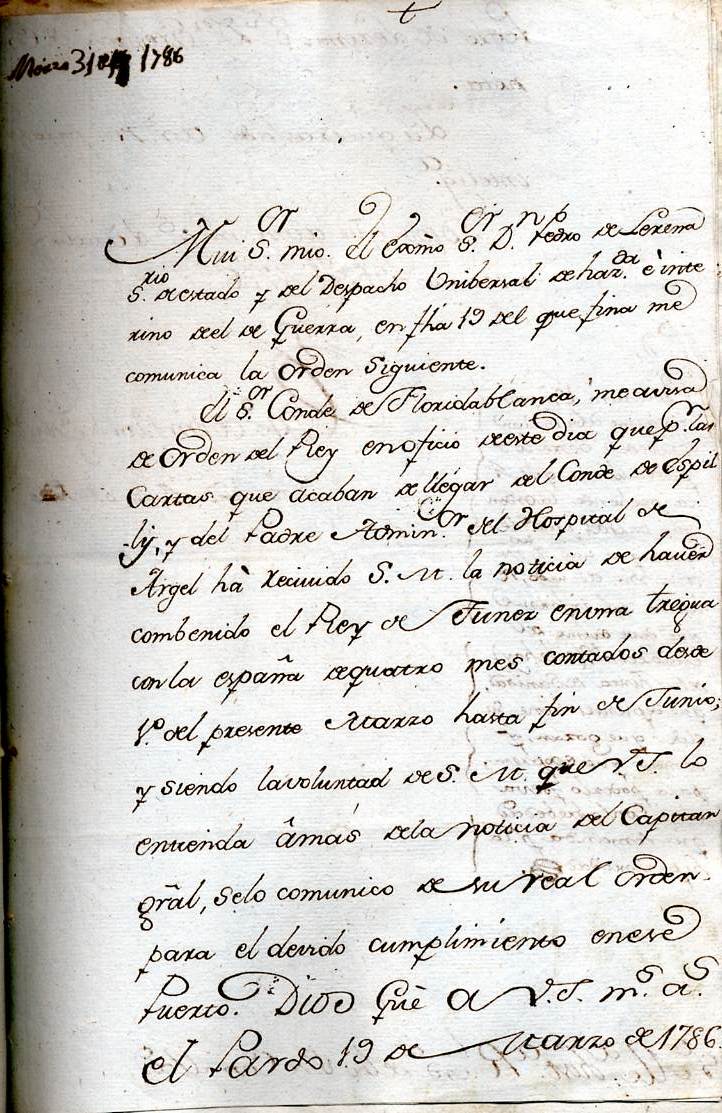 Marzo 31 de 1786
Mui S.or mio. El Exm̃o S.or D.n Pedro de Lerena
S.rio de estado y del Despacho Unibersal de haz.da è inte
rino del de Guerra, en fha 19 del que fina me
comunica la Orden Siguiente.
El S.or Conde de Floridablanca, me avisa
de Orden del Rey en oficio de este dia que p.r las
Cartas que acaban de llegar del Conde de Espil
-ly, y del Padre Admin.or del Hospital de
Argel hà recivido S. M. la noticia de haver
combenido el Rey de Tunez en una tregua
con la españa de quatro mes contados desde
1.º del presente Marzo hasta fin de Junio;
y siendo la voluntad de S. M. que V.S. lo
entienda âmas de la noticia del Capitan
gr̃al, selo comunico de su real orden
para el devido cumplimiento en ese
Puerto. Dios Gũe a V.S. m.s a.s
el Pardo 19 de Marzo de 1786.